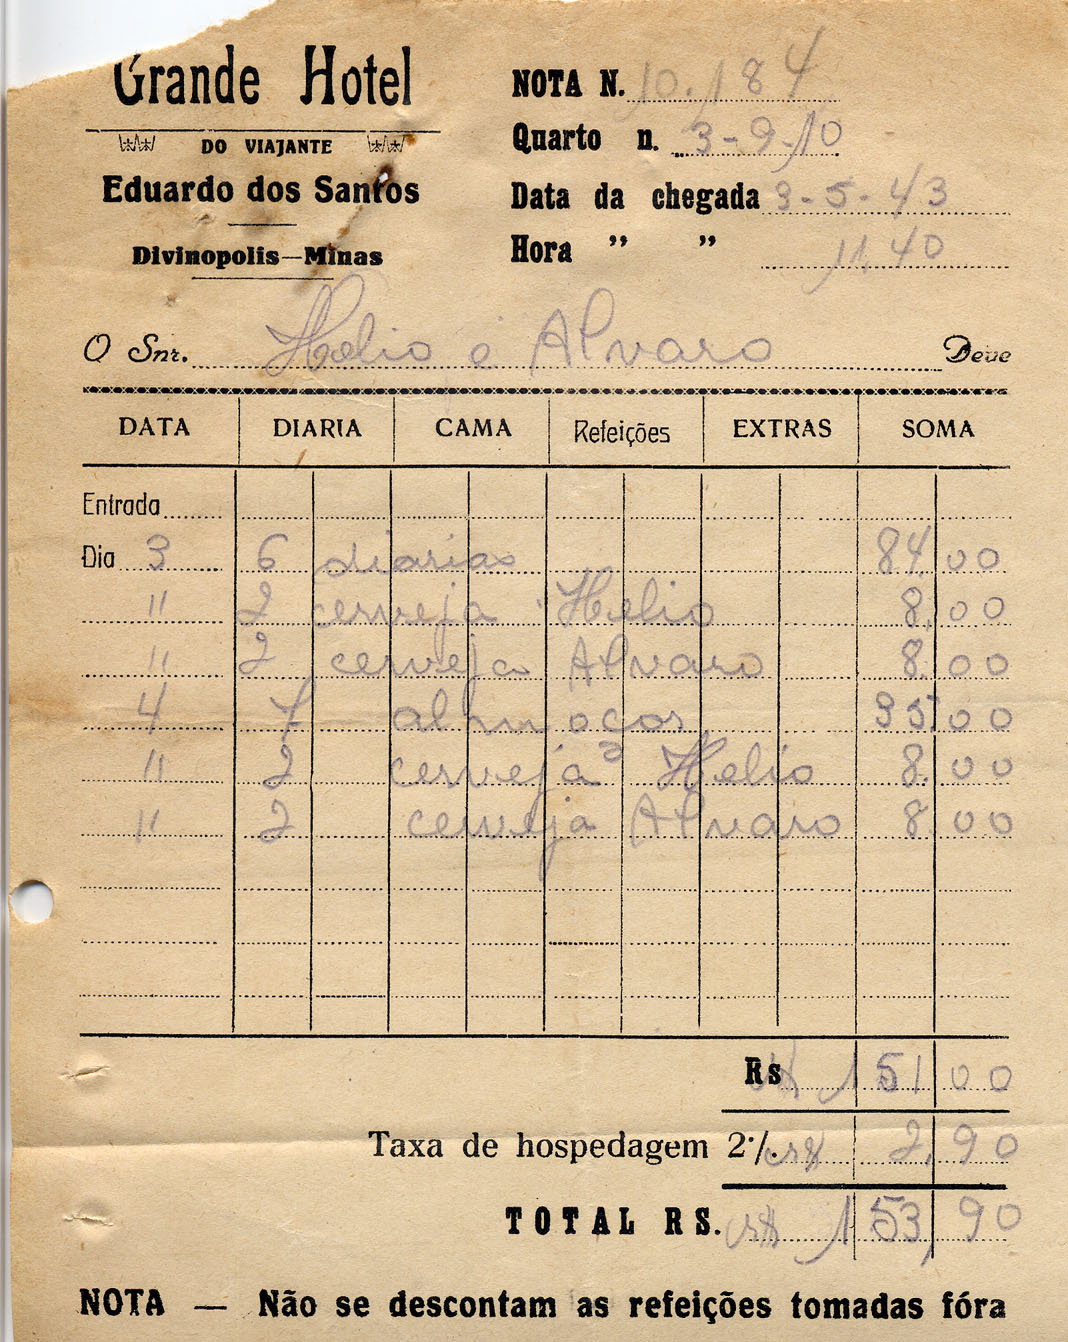 Grande Hotel
DO VIAJANTE
Eduardo dos Santos
Divinopolis—Minas
NOTA N. 10.184
Quarto n. 3-9-10
Data da chegada 3-5-43
Hora " " 11,40
O Snr. Helio e Alvaro Deve
DATA DIARIA CAMA Refeições EXTRAS SOMA
Entrada
Dia 3 6 diarias 84,00
" 2 cerveja Helio 8,00
" 2 cerveja Alvaro 8,00
4 7 almoços 35,00
" 2 cerveja Helio 8,00
" 2 cerveja Alvaro 8,00
Rs 151,00
Taxa de hospedagem 2% cr$ 2,90
TOTAL RS. cr$ 153,90
NOTA — Não se descontam as refeições tomadas fóra